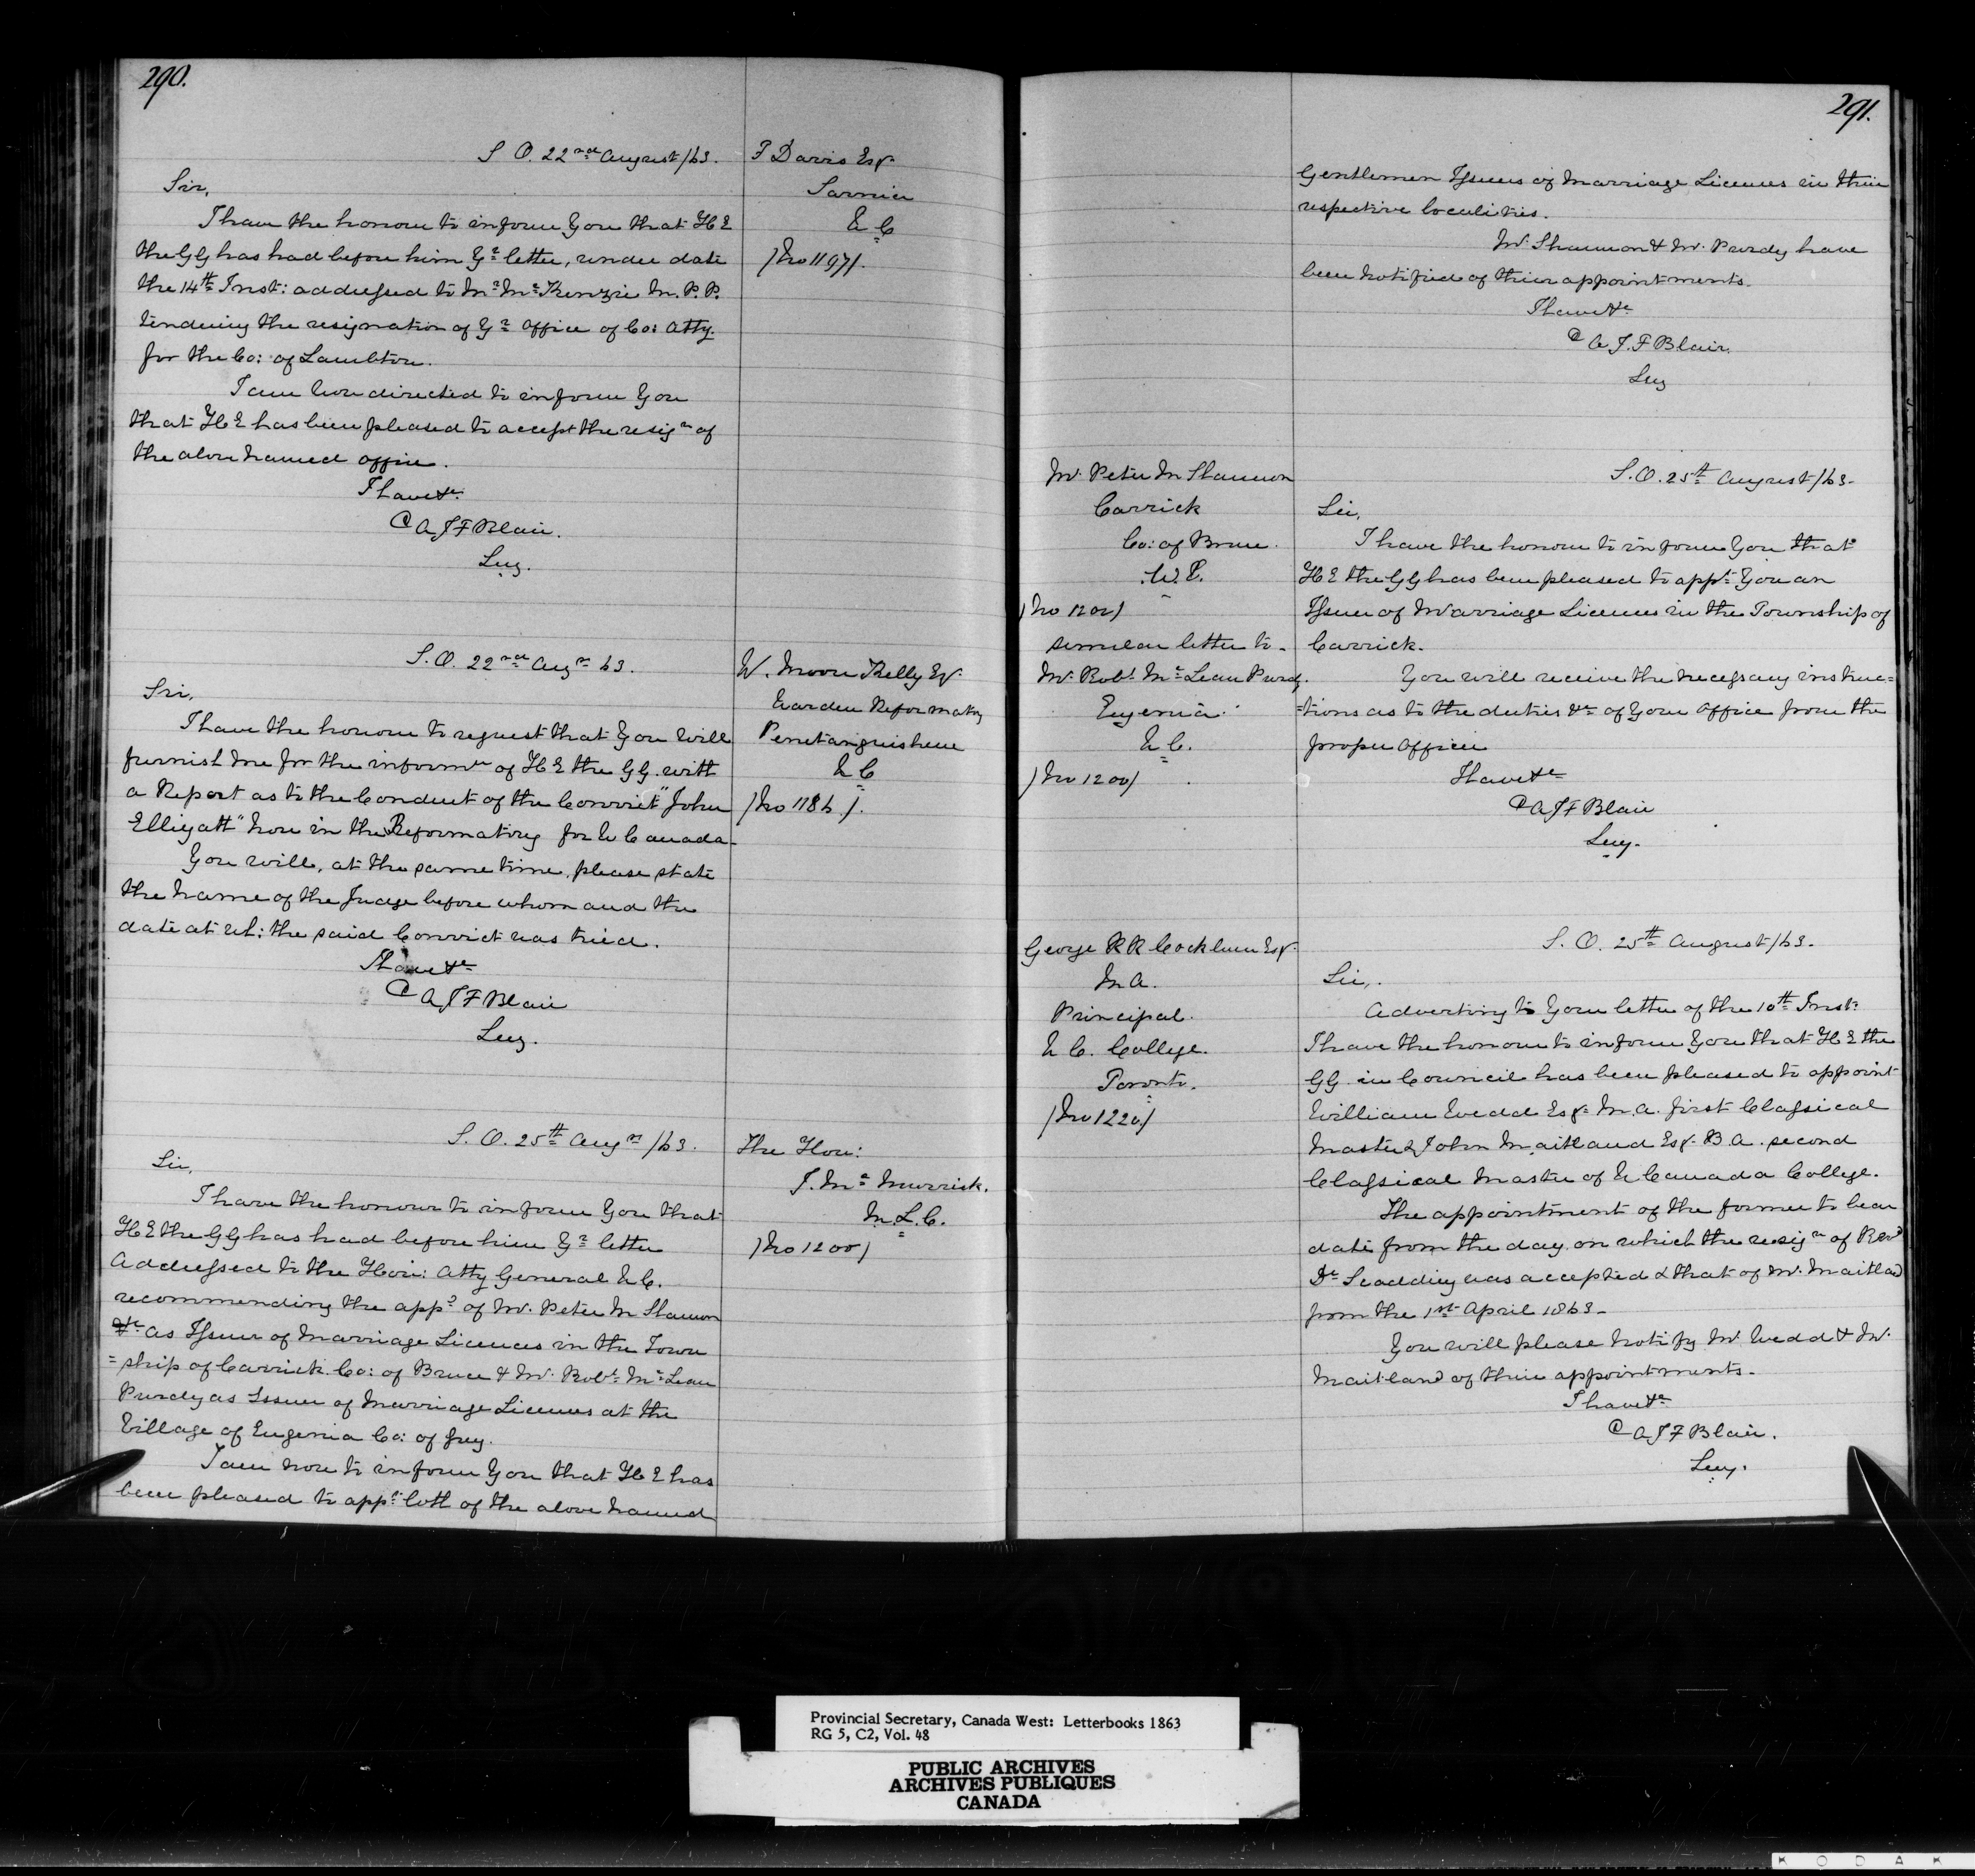 290.
S. O. 22nd August /63.
Sir,
I have the honour to inform You that H E
the G G has had before him Yr letter, under date
the 14th Inst: addressed to Mr McKenzie M. P. P.
tendering the resignation of Yr Office of Co: Atty.
for the Co: of Lambton.
I am now directed to inform You
that H E has been pleased to accept the resign of
the above named office.
I have &c
C A J F Blair.
Secy.
T Davis Esqr
Sarnia
U C
/No 1197/.
S. O. 22nd Augt 63.
Sir,
I have the honour to request that You will
furnish me for the informn of H E the G G. with
a Report as to the Conduct of the Convict "John
Elligatt" now in the Reformatory for U Canada.
You will, at the same time, please state
the name of the Judge before whom and the
date at wh: the said Convict was tried.
I have &c
C A J F Blair
Secy.
W. Moore Kelly Esqr
Warden Reformatory
Penetanguishene
U C
/No 1186/.
S. O. 25th Augt /63.
Sir,
I have the honour to inform You that
H E the G G has had before him Yr letter
Addressed to the Hon: Atty General U C.
recommending the appt of Mr. Peter M Shannon
&c as Issuer of Marriage Licences in the Town
=ship of Carrick Co: of Bruce & Mr. Robt McLean
Purdy as Issuer of Marriage Licenses at the
Village of Eugenia Co: of Grey.
I am now to inform You that H E has
been pleased to appt both of the above named
The Hon:
J. Mc Murrich.
M. L. C.
/No 1200/
291.
Gentlemen Issuers of Marriage Licenses in their
respective localities.
Mr. Shannon & Mr. Purdy have
been notified of their appointments.
I have &c
C A J. F Blair.
Secy
Mr. Peter M Shannon
Carrick
Co: of Bruce.
W. C.
/No 1200/
similar letter to
Mr. Robt McLean Purdy.
Eugenia
U C.
/No 1200/
S. O. 25th August /63.
Sir,
I have the honour to inform You that
H E the G G has been pleased to appt You an
Issuer of Marriage Licences in the Township of
Carrick.
You will receive the necessary instruc=
=tions as to the duties &c of Your Office from the
proper Officer
I have &c
C A J F Blair
Secy.
George R R Cockburn Esqr
M A.
Principal.
U C. College.
Toronto.
/No 1220/
S. O. 25th August /63.
Sir,
Adverting to Your letter of the 10th Inst:
I have the honour to inform You that H E the
G G. in Council has been pleased to appoint
William Wedd Esqr M.A. first Classical
Master & John Maitland Esqr B.A. second
Classical Master of U Canada College.
The appointment of the former to bear
date from the day on which the resign of Revd
Dr Scadding was accepted & that of Mr. Maitland
from the 1st April 1863.
You will please notify Mr. Wedd & Mr.
Maitland of their appointments.
I have &c
C A J F Blair.
Secy.
Provincial Secretary, Canada West: Letterbooks 1863
RG 5, C2, Vol. 48
PUBLIC ARCHIVES
ARCHIVES PUBLIQUES
CANADA
KODAK